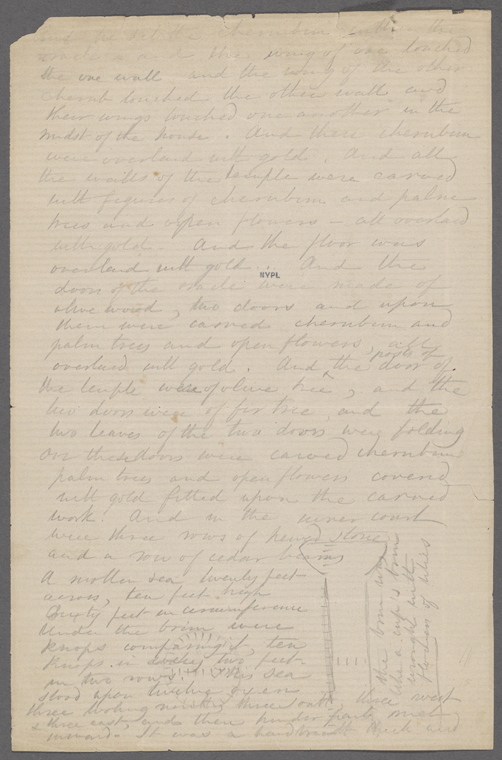 and he set the cherubim within the
oracle and the wing of one touched
the one wall and the wing of the other
cherub touched the other wall and
their wings touched one another in the
midst of the house. And these cherubim
were overlaid with gold. And all
the walls of the temple were carved
with figures of cherubim and palm
trees and open flowers - all overlaid
with gold. And the floor was
overlaid with gold. And the
NYPL
doors of the oracle were made of
olive wood, two doors and upon
them were carved cherubim and
palm trees and open flowers, all
overlaid with gold. And the posts of door of
the temple were of olive tree, and the
two doors were of fir tree and the
two leaves of the two doors were folding
On these doors were carved cherubim
palm trees and open flowers covered
with gold fitted upon the carved
work. And in the inner court
were three rows of hewed stone
and a row of cedar beams
A molten sea twenty feet
across, ten feet high
Sixty feet in circumference
Under the brim were
knops compassing it, ten
knops in two feet
in two rows. This sea
stood upon twelve oxen
three looking north, three west
& three east, and their hinder parts
inward. It was a handbreadth thick and
the brim was
like a cup's brim
wrought with
flowers of lilies